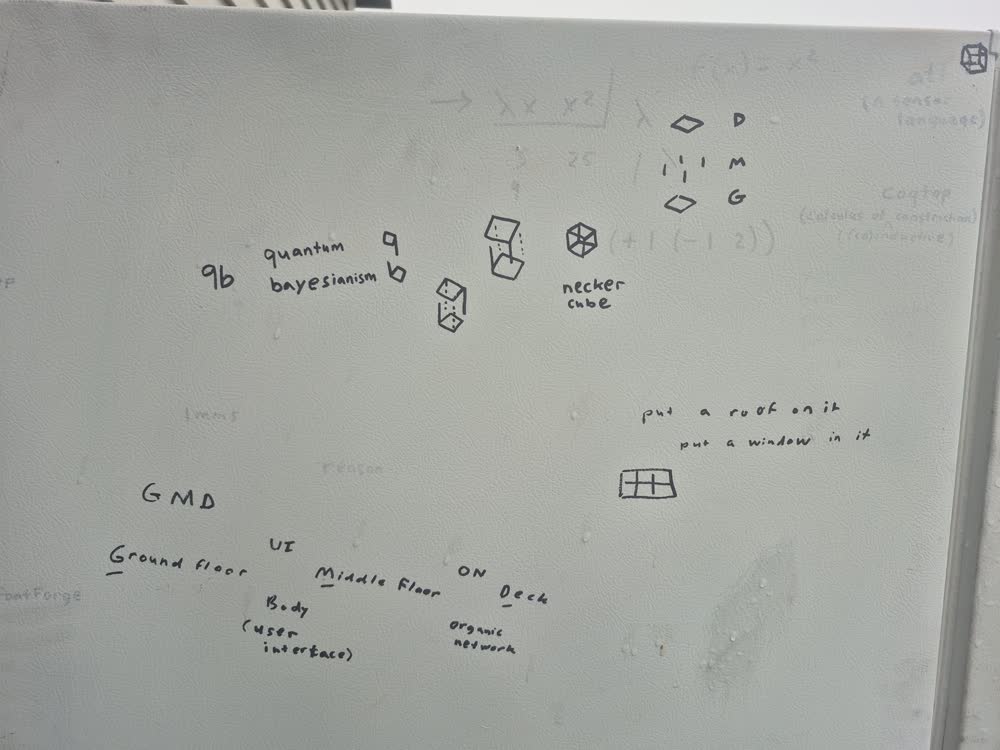 f(x) = x²
→ λx x² λ
D
5 25
M
9
G
ati
(a tensor
language)
coqtop
(calculus of construction)
((co)inductive)
(+ 1 (- 1 2))
qb
quantum q
bayesianism b
necker
cube
put a roof on it
put a window in it
reason
GMD
UI
Ground floor
Middle Floor
ON
Deck
FontForge
Body
(user
interface)
organic
network